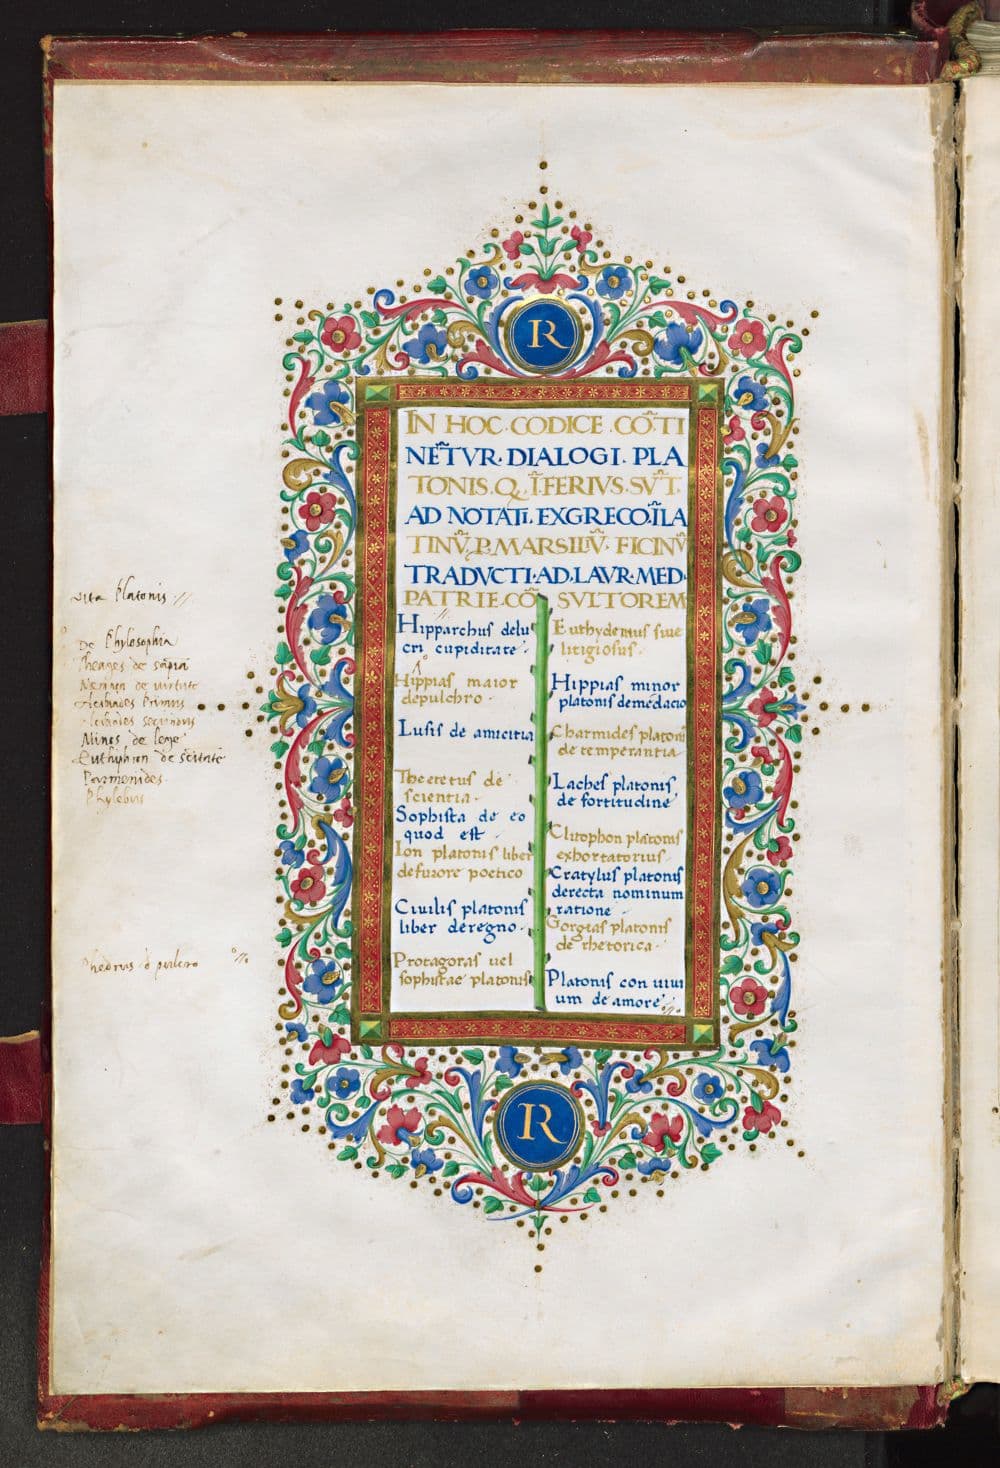 R
IN HOC CODICE CO̅TI
NE̅TVR· DIALOGI· PLA
TONIS. Q. I̅FERIVS· SV̅T.
AD NOTATI. EXGRECO· I̅LA
TINV̅. P. MARSILIV̅. FICINV̅
TRADVCTI· AD· LAVR· MED·
PATRIE· CO̅SVLTOREM
Hipparchus delu
cri cupiditate·
Hippias maior
depulchro·
Lusis de amicitia
Theetetus de
scientia·
Sophista de eo
quod est
Ion platonis liber
defurore poetico
Ciuilis platonis
liber deregno·
Protagoras uel
sophistae platonis
Euthydemus siue
litigiosus·
Hippias minor
platonis demedacio
Charmides platoni
de temperantia
Laches platonis
de fortitudine
Clitophon platonis
exhortatorius·
Cratylus platonis
derecta nominum
ratione·
Gorgias platonis
de rhetorica·
Platonis con uiui
um de amore·
R
uita Platonis·//
De Phylosophia
Theages de sapia̅
Menon de uirtute
Alcibiades Primus
Alcibiades secundus
Minos de lege
Euthiphron de sc̅itate
Parmenides·
Phylebus
Phedrus d pulcro